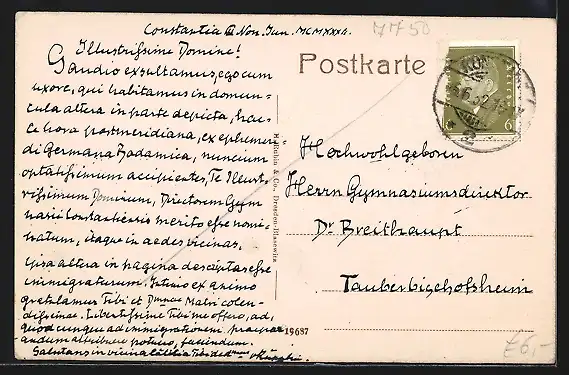 7750
Constantia III Non. Jun. MCMXXXII.
Illustrissime Domine!
Gaudio exsultamus, ego cum
uxore, qui habitamus in domun-
cula altera in parte depicta, hac-
ce hora postmeridiana, ex ephemeri-
di Germana Badamica, nuncium
optatissimum accipientes, Te Illust-
rissimum Dominum, Directorem Gym
narii Constantiensis merito esse nomi-
natum, itaque in aedes vicinas,
ipsa altera in pagina descriptas esse
immigraturum. Intimo ex animo
gratulamur Tibi et Matri colen-
dissimae. Libertissime Tibi me offero, ad,
quodcunque ad immigrationem praepar
andum attribuere potero, faciendum.
Salutans in vicina
Postkarte
Hochwohlgeboren
Herrn Gymnasiumsdirektor
Dr Breithaupt
Tauberbischofsheim
& Co., Dresden-Blasewitz
19687
6
€6,-